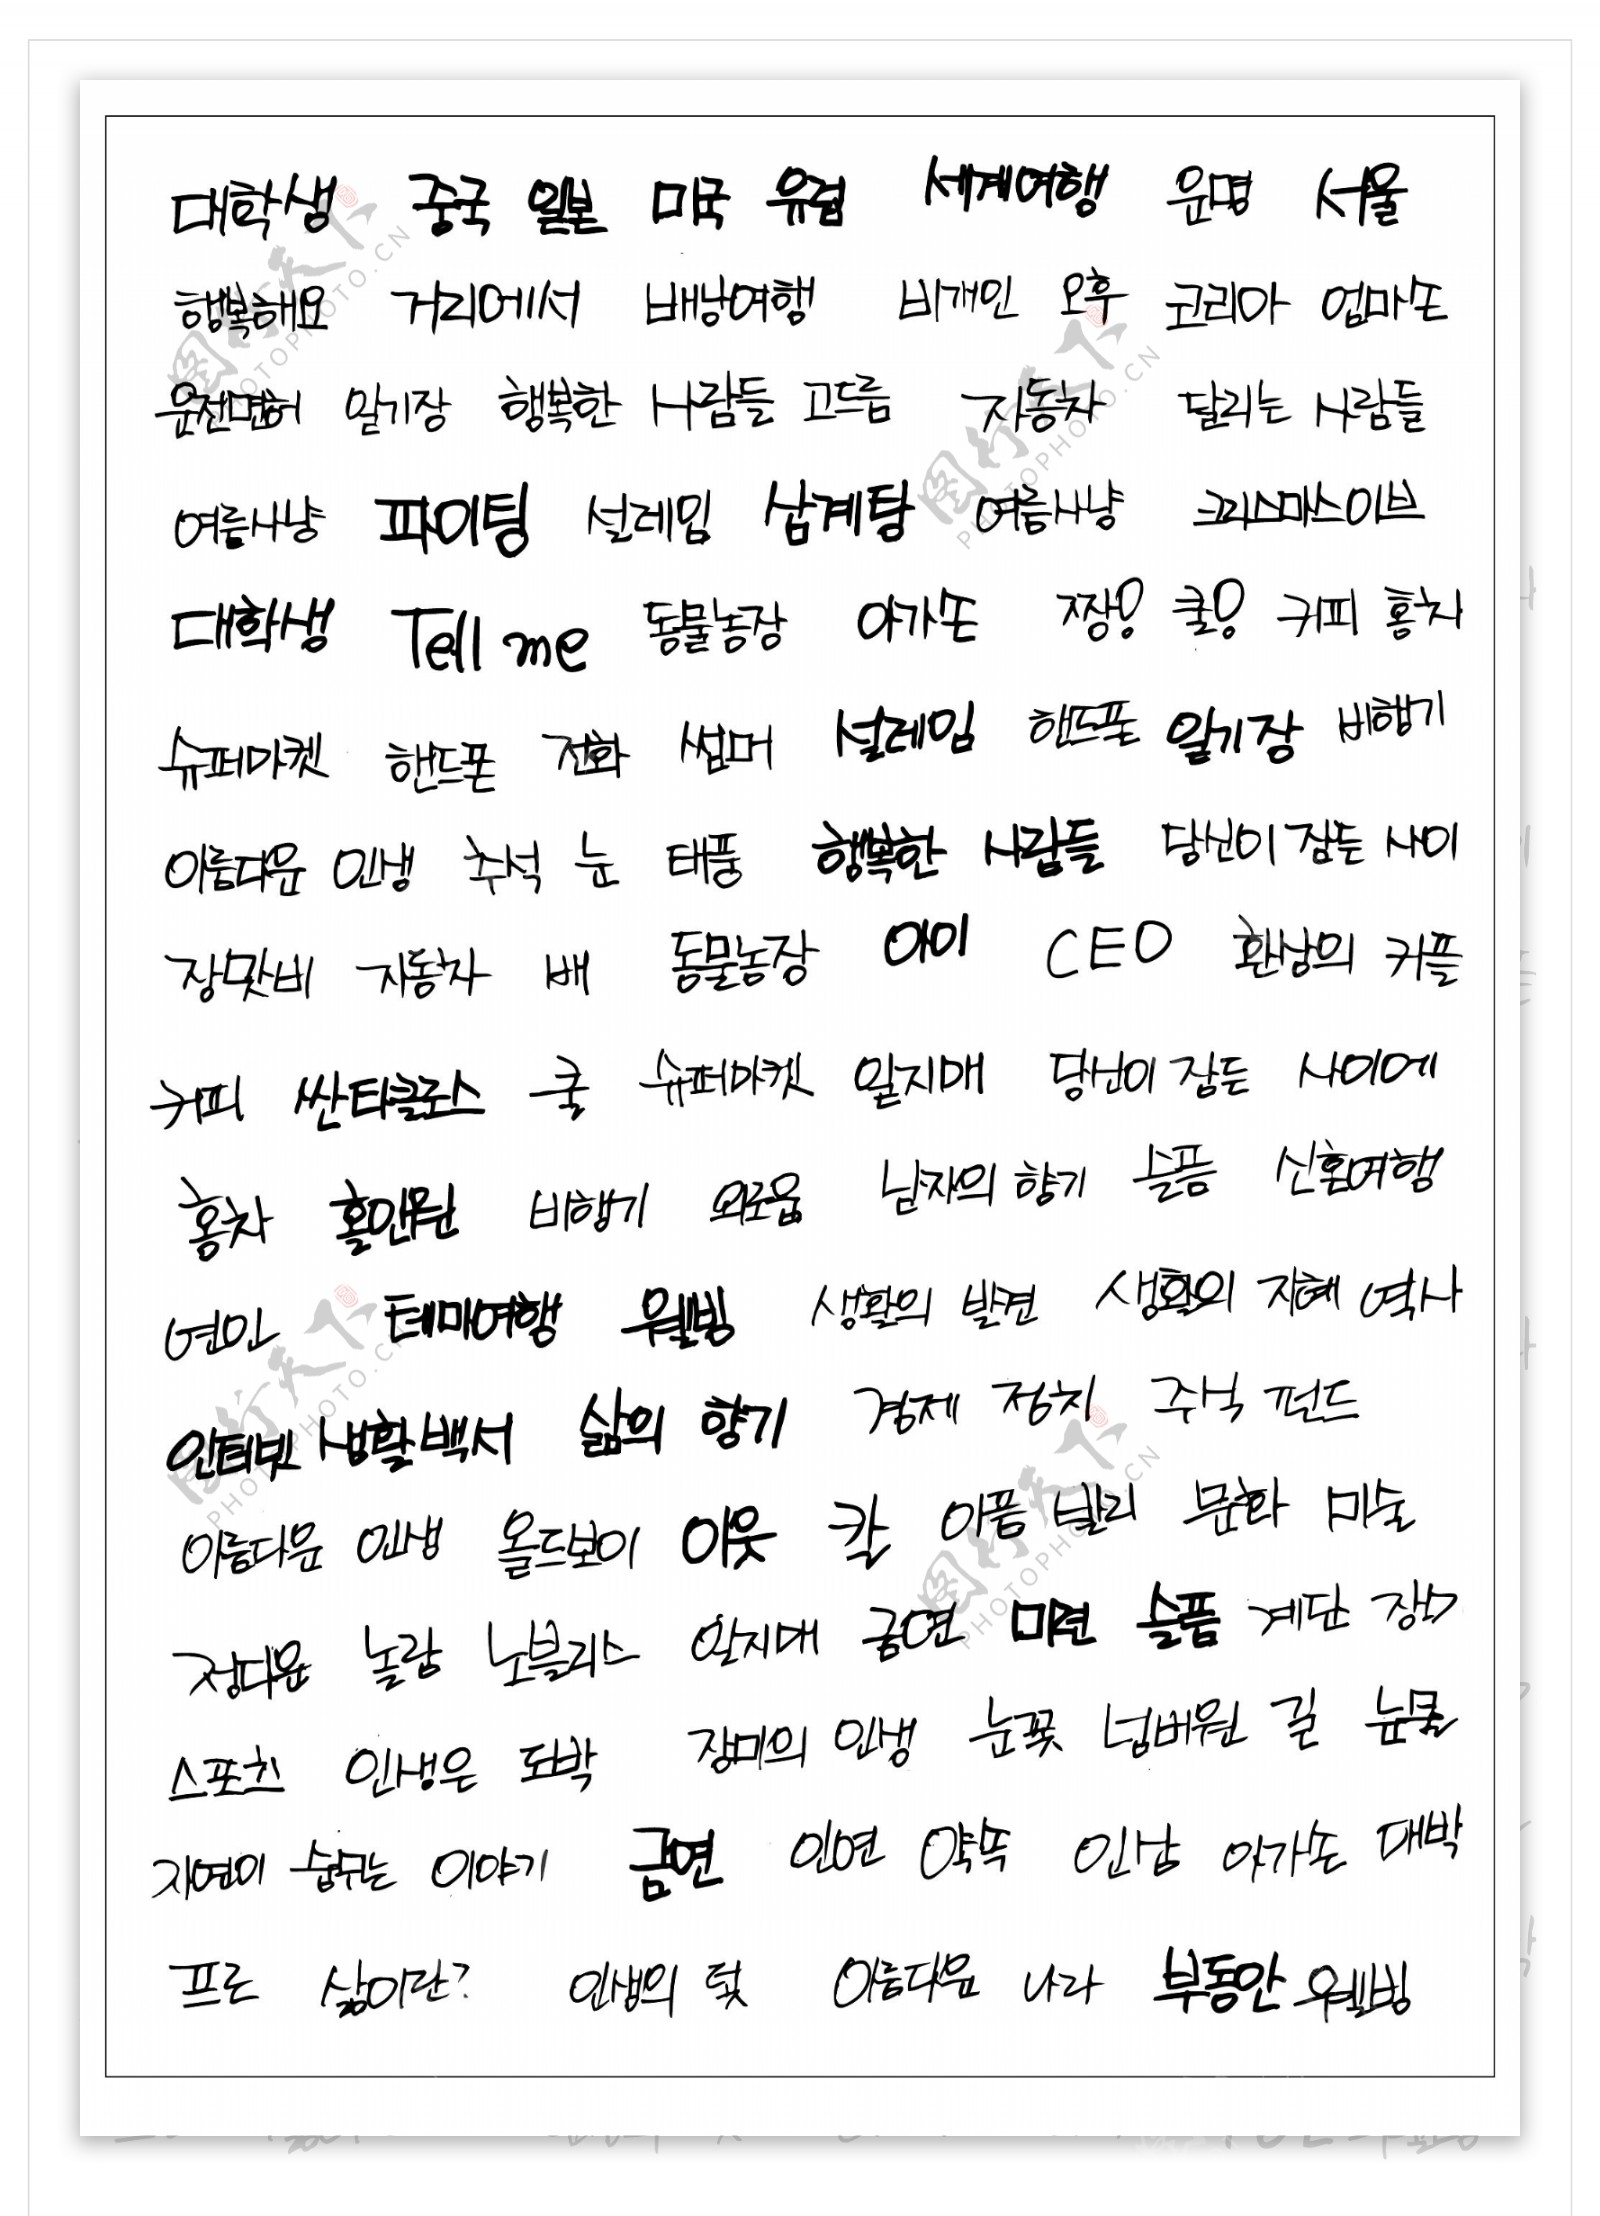 대학생 중국 일본 미국 유럽 세계여행 운명 서울
행복해요 거리에서 배낭여행 비개인 오후 코리아 엄마손
운전면허 일기장 행복한 사람들 고드름 자동차 달리는 사람들
여름사냥 파이팅 설레임 삼계탕 여름사냥 크리스마스이브
대학생 Tell me 동물농장 아가손 짱! 쿨! 커피 홍차
슈퍼마켓 핸드폰 전화 썸머 설레임 핸드폰 일기장 비행기
아름다운 인생 추석 눈 태풍 행복한 사람들 당신이 잠든 사이
장맛비 자동차 배 동물농장 아이 CEO 환상의 커플
커피 싼타클로스 쿨 슈퍼마켓 일지매 당신이 잠든 사이에
홍차 홀인원 비행기 외로움 남자의 향기 슬픔 신혼여행
연인 테마여행 웰빙 생활의 발견 생활의 지혜 역사
인터넷 생활백서 삶의 향기 경제 정치 주식 펀드
아름다운 인생 올드보이 이웃 칼 아픔 발리 문화 미술
정다운 놀람 노블리스 일지매 금연 미련 슬픔 계단
스포츠 인생은 도박 장미의 인생 눈꽃 넘버원 길 눈물
자연이 숨쉬는 이야기 금연 인연 약속 인삼 아가손 대박
프론 삶이란? 인생의 덫 아름다운 나라 부동산 웰빙
PHOTOPHOTO.CN
PHOTOPHOTO.CN
PHOTOPHOTO.CN
PHOTOPHOTO.CN